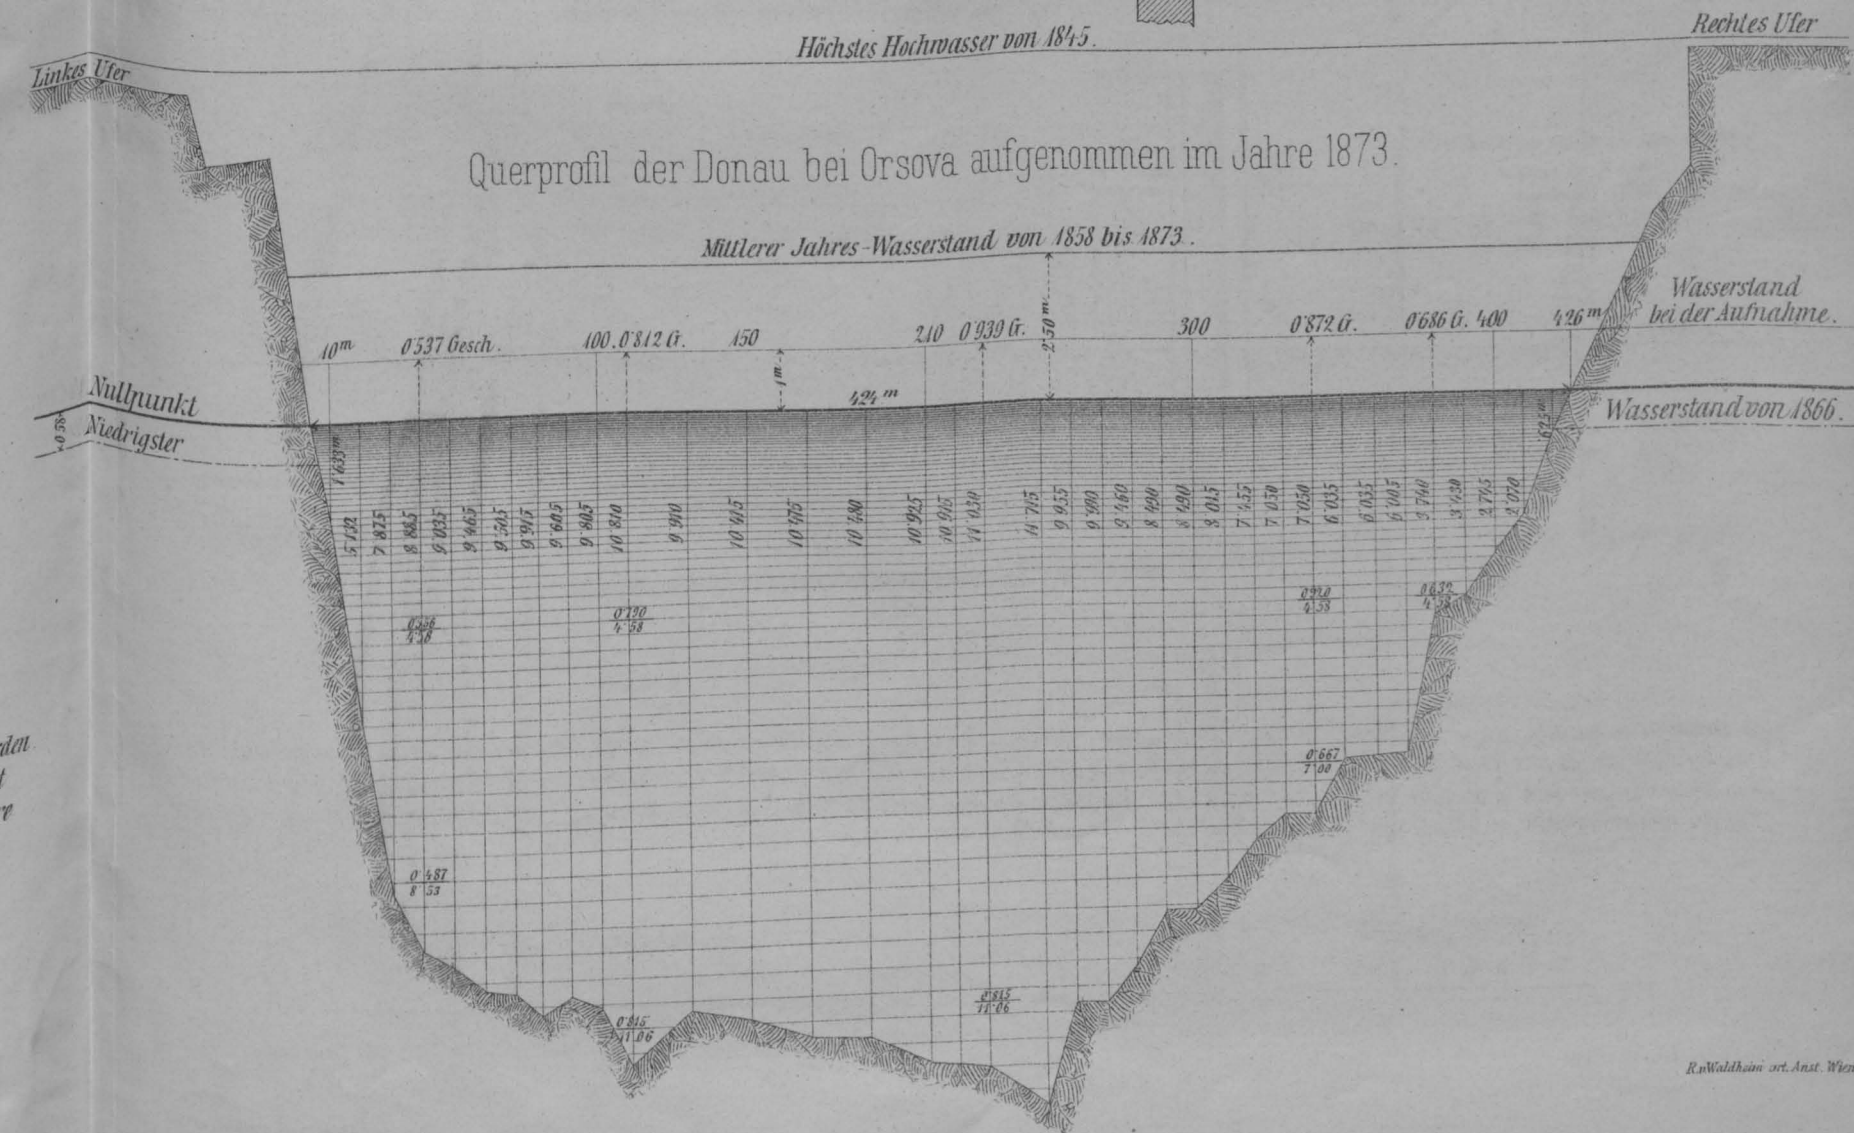 Höchstes Hochwasser von 1845.
Rechtes Ufer
Linkes Ufer
Querprofil der Donau bei Orsova aufgenommen im Jahre 1873.
Mittlerer Jahres-Wasserstand von 1858 bis 1873.
Wasserstand
bei der Aufnahme.
10m 0'537 Gesch. 100. 0'812 G. 150 210 0'939 G. 2'50 m 300 0'872 G. 0'686 G. 400 426m
1m
424 m
Nullpunkt
Niedrigster
Wasserstand von 1866.
1'633m
5'132 7'875 8'885 9'035 9'465 9'505 9'915 9'605 9'805 10'810 9'910 10'415 10'475 10'480 10'925 10'915 11'030 11'715 9'955 9'990 9'460 8'490 8'490 8'015 7'455 7'050 7'050 6'035 6'035 6'005 3'740 3'430 2'745 2'070
4'58
0'790
4'58
0'920
4'58
0'632
4'58
0'667
7'00
0'487
8'53
0'815
11'06
0'815
11'06
den
R.v.Waldheim art. Anst. Wien